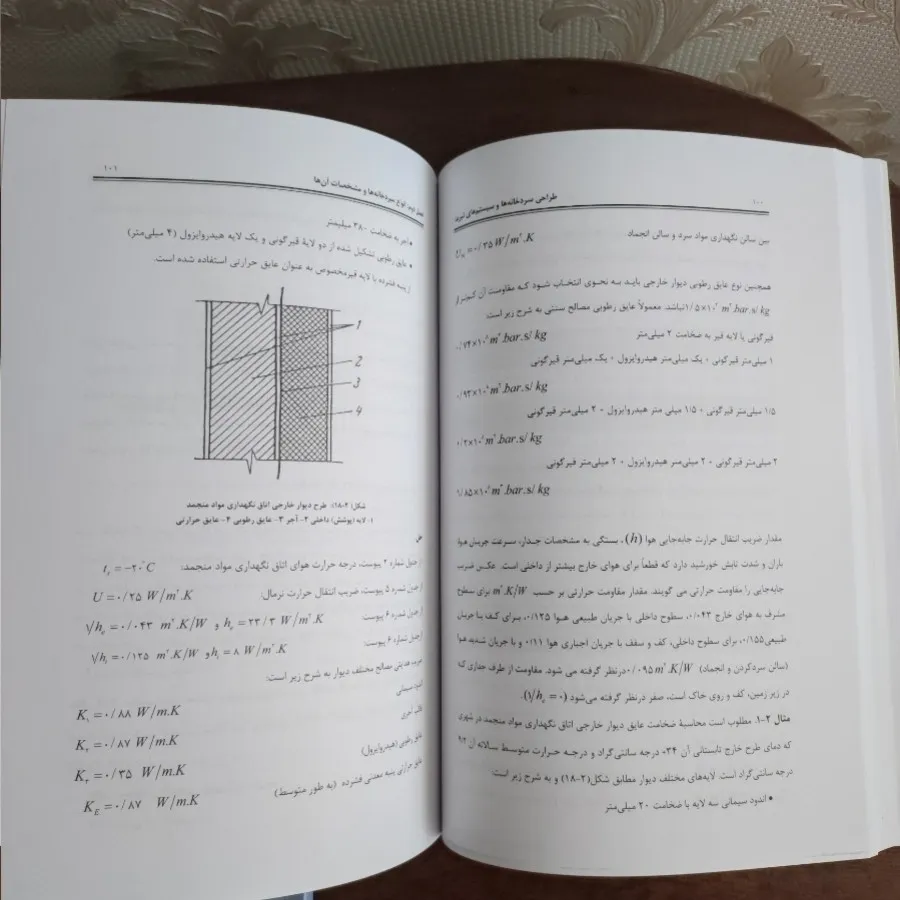 ۱۰۰
طراحی سردخانه‌ها و سیستم‌های تبرید
بین سالن نگهداری مواد سرد و سالن انجماد
U =۰/۳۵ W/m².K
همچنین نوع عایق رطوبی دیوار خارجی باید به نحوی انتخاب شود که مقاومت آن کمتر از
۱/۵×۱۰ m².bar.s/kg نباشد. معمولاً عایق رطوبی مصالح سنتی به شرح زیر است:
قیرگونی یا لایه قیر به ضخامت ۲ میلی‌متر
۰/۷۴×۱۰ m².bar.s/kg
۱ میلی‌متر قیرگونی + یک میلی‌متر هیدروایزول + یک میلی‌متر قیرگونی
۰/۹۳×۱۰ m².bar.s/kg
۱/۵ میلی‌متر قیرگونی + ۱/۵ میلی متر هیدروایزول + ۲ میلی‌متر قیرگونی
m².bar.s/kg
۲ میلی‌متر قیرگونی + ۲ میلی‌متر هیدروایزول + ۲ میلی‌متر قیرگونی
۱/۸۵×۱۰ m².bar.s/kg
مقدار ضریب انتقال حرارت جابه‌جایی هوا (h)، بستگی به مشخصات جدار، سرعت جریان هوا
باران و شدت تابش خورشید دارد که قطعاً برای هوای خارج بیشتر از داخلی است. عکس ضریب
جابه‌جایی را مقاومت حرارتی می گویند. مقدار مقاومت حرارتی بر حسب m².K/W برای سطوح
مشرف به هوای خارج ۰/۰۴۳، سطوح داخلی با جریان طبیعی هوا ۰/۱۲۵، برای کف با جریان
طبیعی ۰/۱۵۵، برای سطوح داخلی، کف و سقف با جریان اجباری هوا ۰/۱۱ و با جریان شدید هوا
(سالن سردکردن و انجماد) ۰/۰۹۵ m².K/W درنظر گرفته می شود. مقاومت از طرف جداری که
در زیر زمین، کف و روی خاک است، صفر درنظر گرفته می‌شود (۱/hₑ = ۰).
مثال ۲-۱. مطلوب است محاسبهٔ ضخامت عایق دیوار خارجی اتاق نگهداری مواد منجمد در شهری
که دمای طرح خارج تابستانی آن ۳۴+ درجه سانتی‌گراد و درجه حرارت متوسط سالانه آن ۹/۲
درجه سانتی‌گراد است. لایه‌های مختلف دیوار مطابق شکل(۲-۱۸) و به شرح زیر است:
• اندود سیمانی سه لایه با ضخامت ۲۰ میلی‌متر
فصل دوم: انواع سردخانه‌ها و مشخصات آن‌ها
۱۰۱
• آجر به ضخامت ۳۸۰ میلیمتر
• عایق رطوبی تشکیل شده از دو لایهٔ قیرگونی و یک لایه هیدروایزول (۴ میلی‌متر)
از پنبه فشرده با لایه قیرمخصوص به عنوان عایق حرارتی استفاده شده است.
1
2
3
4
شکل(۲-۱۸) طرح دیوار خارجی اتاق نگهداری مواد منجمد
۱- لایه (پوشش) داخلی ۲- آجر ۳- عایق رطوبی ۴- عایق حرارتی
حل
از جدول شماره ۲ پیوست، درجه حرارت هوای اتاق نگهداری مواد منجمد: t =−۲۰°C
از جدول شماره ۵ پیوست، ضریب انتقال حرارت نرمال: U =۰/۲۵ W/m².K
از جدول شماره ۶ پیوست: hₑ =۲۳/۳ W/m².K و ۱/hₑ =۰/۰۴۳ m².K/W
ازجدول شماره ۶ پیوست: hᵢ =۸ W/m².K و ۱/hᵢ =۰/۱۲۵ m².K/W
ضریب هدایتی مصالح مختلف دیوار به شرح زیر است:
اندود سیمانی
K₁ =۰/۸۸ W/m.K
آجری
K₂ =۰/۸۷ W/m.K
عایق رطوبی (هیدروایزول)
K₃ =۰/۳۵ W/m.K
عایق حرارتی پنبه معدنی فشرده (به طور متوسط)
K =۰/۸۷ W/m.K